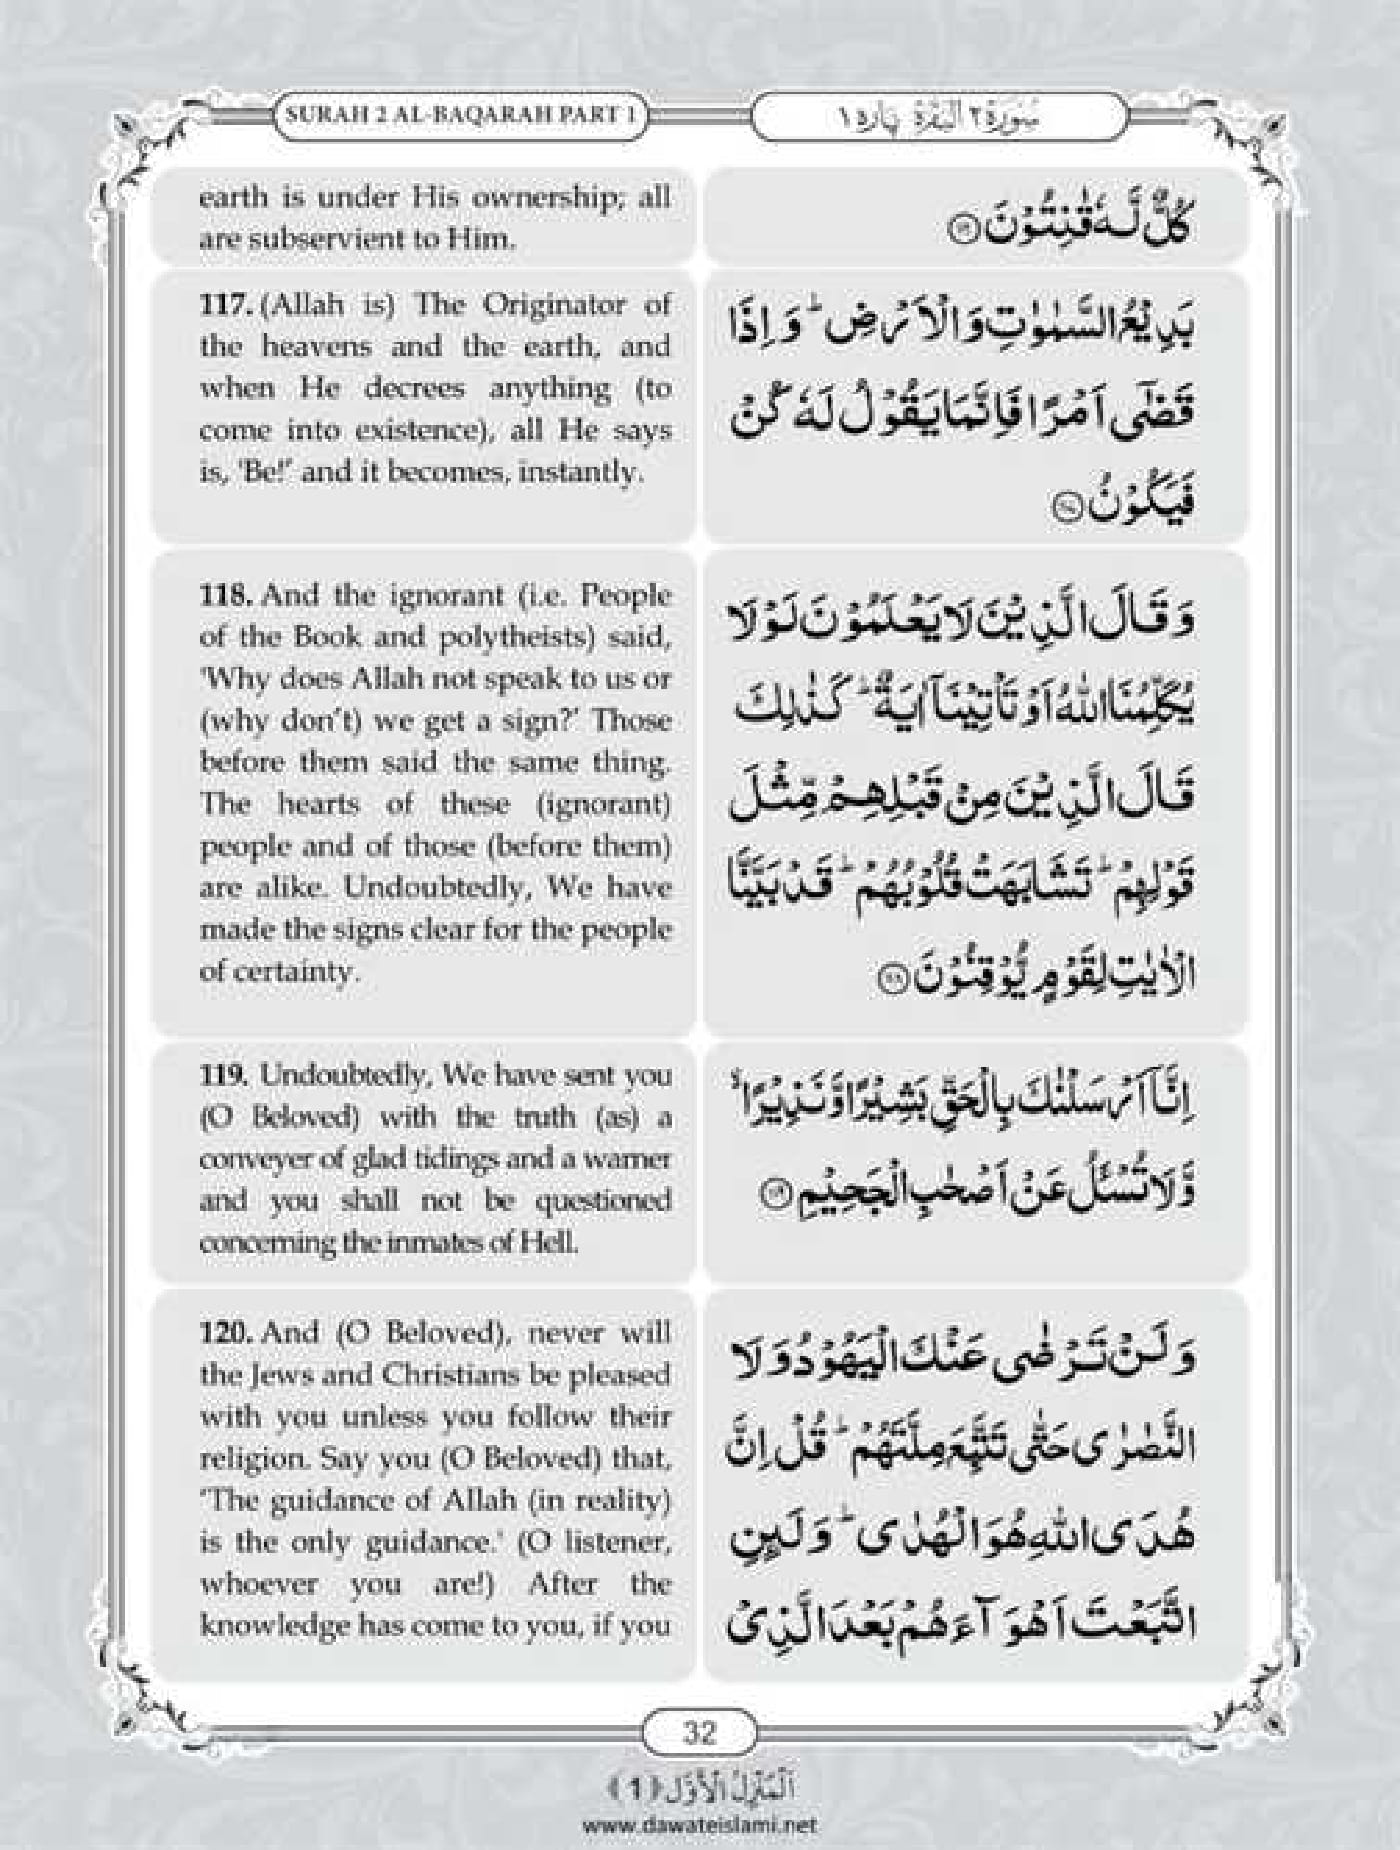 SURAH 2 AL-BAQARAH PART 1
سُوْرَةُ ٢ اَلْبَقَرَة پارہ ١
earth is under His ownership; all
are subservient to Him.
كُلٌّ لَّهٗ قٰنِتُوْنَ
117. (Allah is) The Originator of
the heavens and the earth, and
when He decrees anything (to
come into existence), all He says
is, 'Be!' and it becomes, instantly.
بَدِيْعُ السَّمٰوٰتِ وَالْاَرْضِ ؕ وَ اِذَا
قَضٰۤى اَمْرًا فَاِنَّمَا يَقُوْلُ لَهٗ كُنْ
فَيَكُوْنُ
118. And the ignorant (i.e. People
of the Book and polytheists) said,
'Why does Allah not speak to us or
(why don't) we get a sign?' Those
before them said the same thing.
The hearts of these (ignorant)
people and of those (before them)
are alike. Undoubtedly, We have
made the signs clear for the people
of certainty.
وَ قَالَ الَّذِيْنَ لَا يَعْلَمُوْنَ لَوْلَا
يُكَلِّمُنَا اللّٰهُ اَوْ تَاْتِيْنَاۤ اٰيَةٌ ؕ كَذٰلِكَ
قَالَ الَّذِيْنَ مِنْ قَبْلِهِمْ مِّثْلَ
قَوْلِهِمْ ؕ تَشَابَهَتْ قُلُوْبُهُمْ ؕ قَدْ بَيَّنَّا
الْاٰيٰتِ لِقَوْمٍ يُّوْقِنُوْنَ ١١٨
119. Undoubtedly, We have sent you
(O Beloved) with the truth (as) a
conveyer of glad tidings and a warner
and you shall not be questioned
concerning the inmates of Hell.
اِنَّاۤ اَرْسَلْنٰكَ بِالْحَقِّ بَشِيْرًا وَّ نَذِيْرًا ۙ
وَّ لَا تُسْـَٔلُ عَنْ اَصْحٰبِ الْجَحِيْمِ
120. And (O Beloved), never will
the Jews and Christians be pleased
with you unless you follow their
religion. Say you (O Beloved) that,
'The guidance of Allah (in reality)
is the only guidance.' (O listener,
whoever you are!) After the
knowledge has come to you, if you
وَ لَنْ تَرْضٰى عَنْكَ الْيَهُوْدُ وَ لَا
النَّصٰرٰى حَتّٰى تَتَّبِعَ مِلَّتَهُمْ ؕ قُلْ اِنَّ
هُدَى اللّٰهِ هُوَ الْهُدٰى ؕ وَ لَىِٕنِ
اتَّبَعْتَ اَهْوَآءَهُمْ بَعْدَ الَّذِیْ
32
اَلْمَنْزِلُ الْاَوَّل ﴿1﴾
www.dawateislami.net